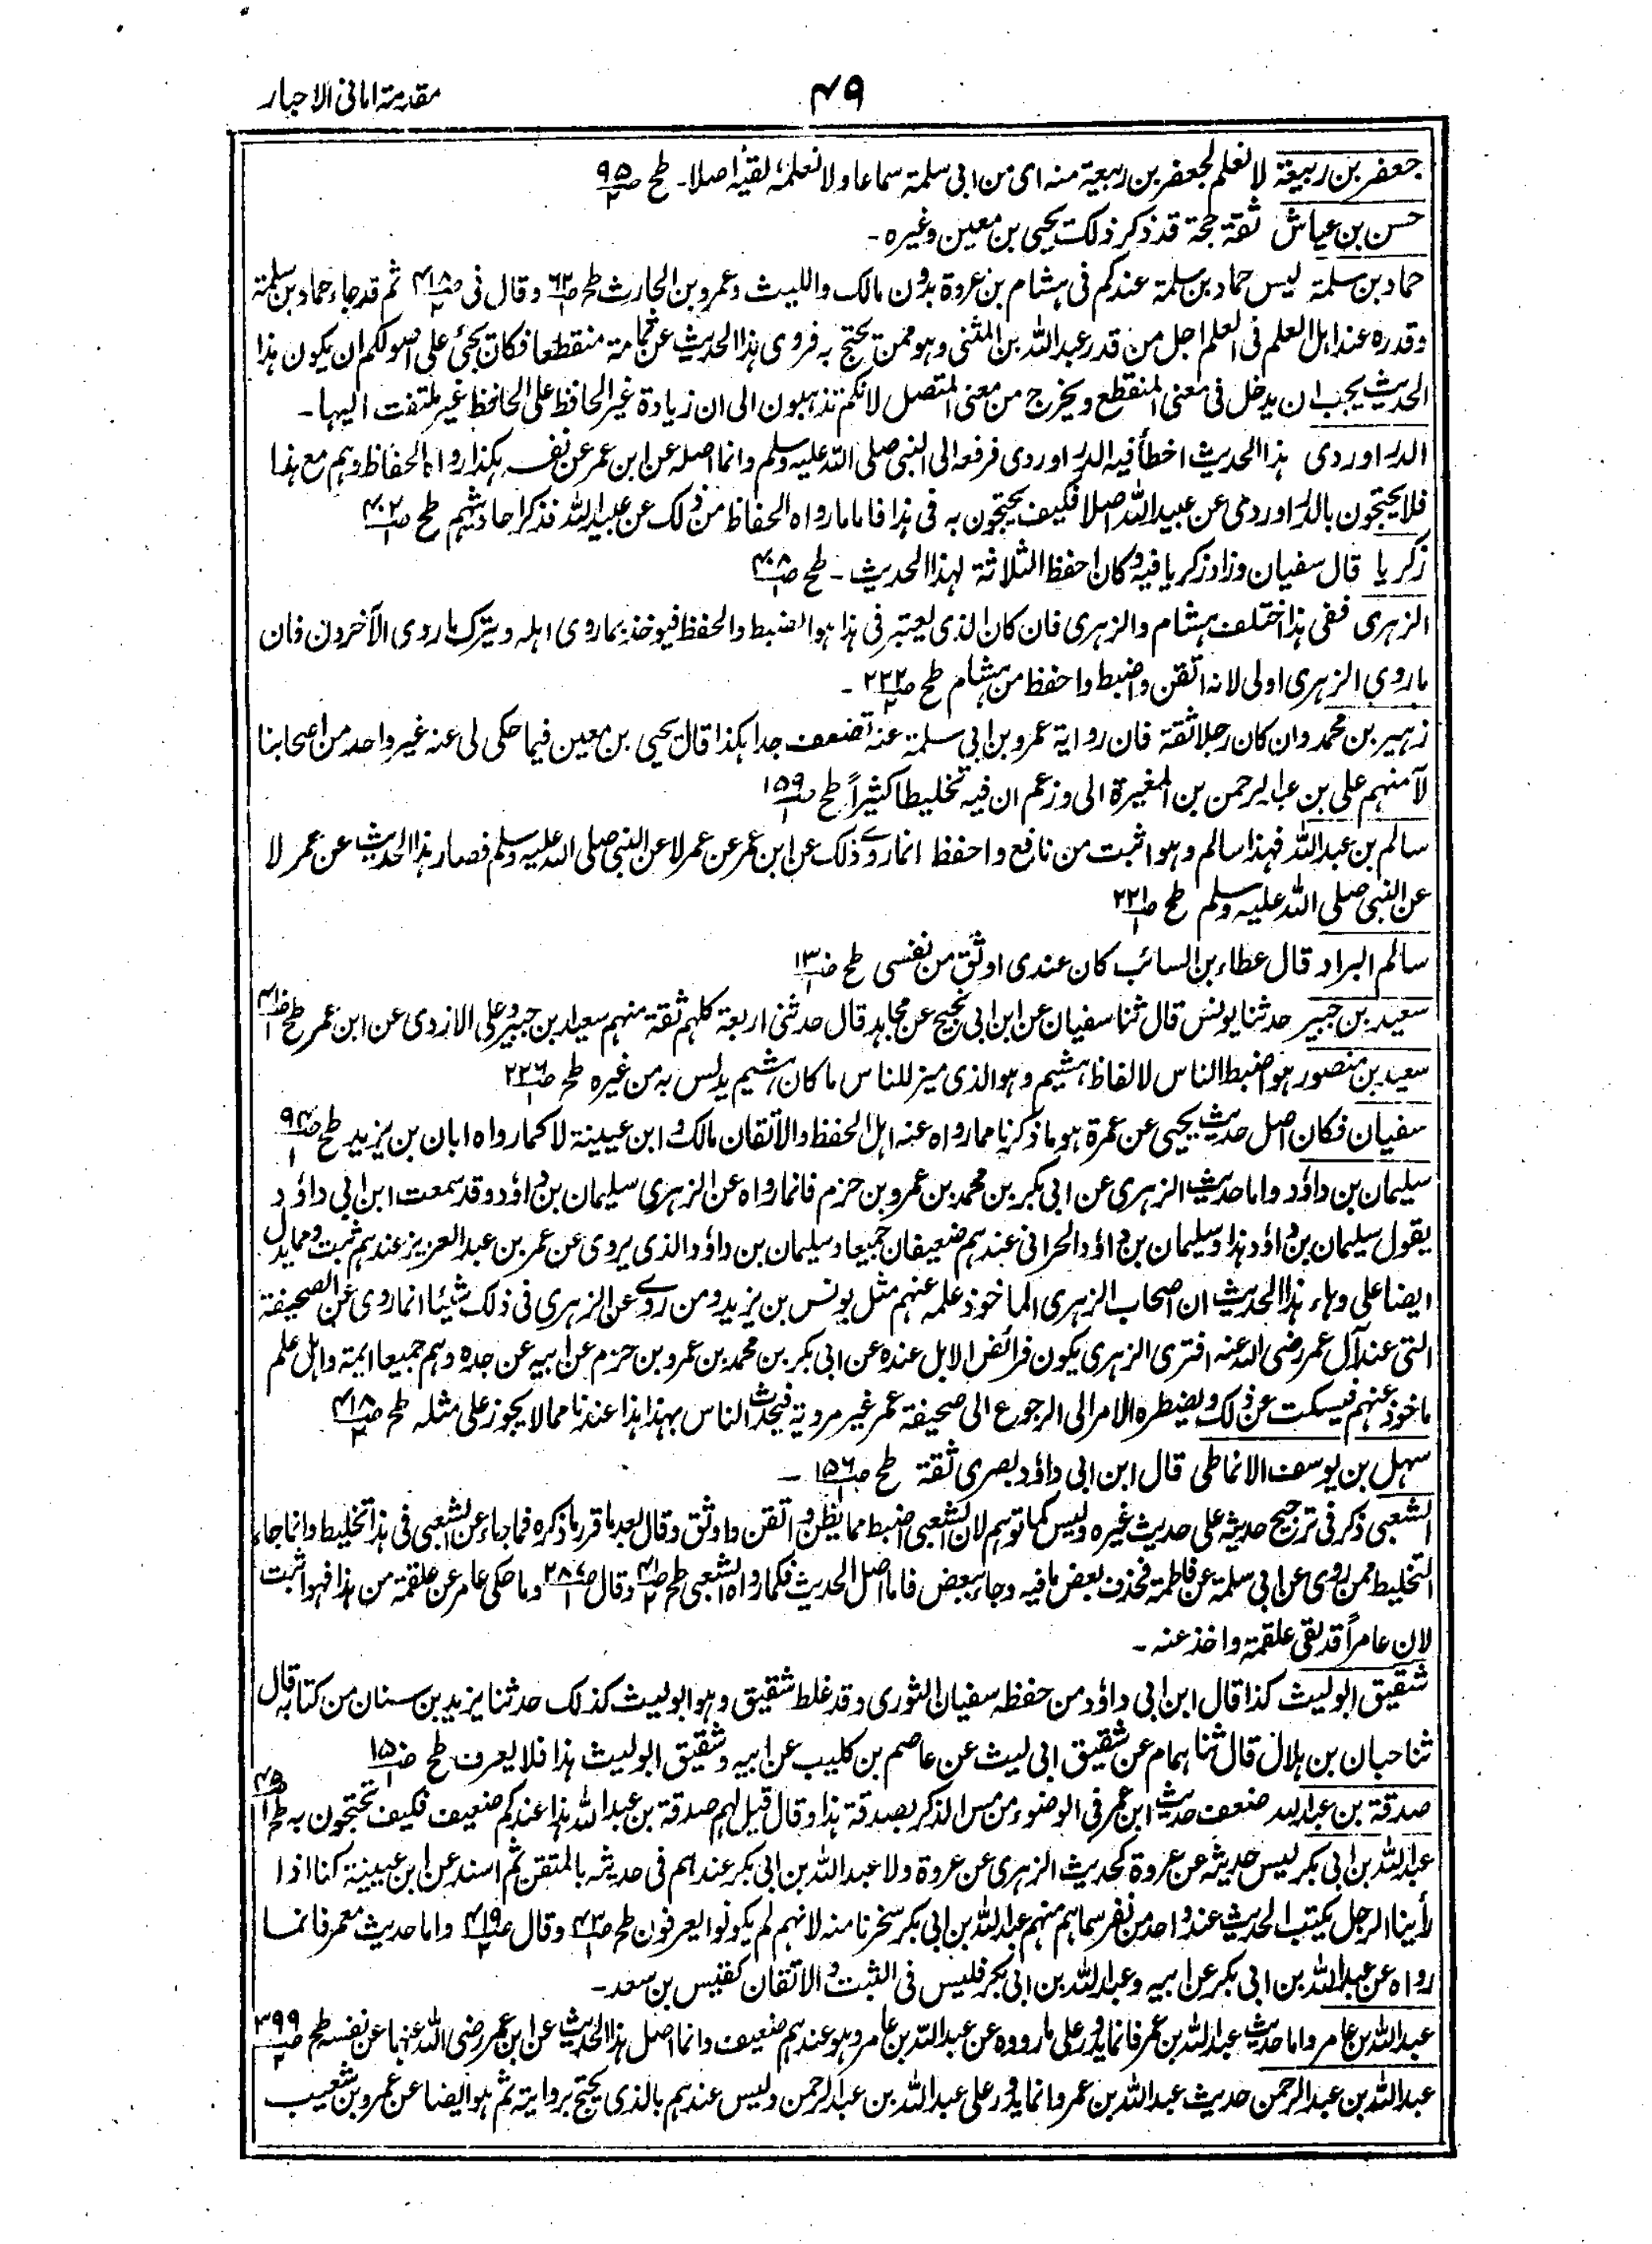 مقدمة امانی الاحبار
۴۹
جعفر بن ربیعة لا نعلم لجعفر بن ربیعة منه ای من ابی سلمة سماعا ولا نعلمه لقیه اصلا۔ طح ص ۹۵/۲
حسن بن عیاش ثقة حجة قد ذکر ذلک یحیی بن معین وغیره۔
حماد بن سلمة لیس حماد بن سلمة عندکم فی ہشام بن عروة بدون مالک واللیث وعمرو بن الحارث طح ص ۶۳/۱ وقال فی ص ۴۱۸/۲ ثم قد جاء حماد بن سلمة
وقدره عند اہل العلم فی العلم اجل من قدر عبد الله بن المثنی وہو ممن یحتج به فروی ہذا الحدیث عن ثمامة منقطعا فکان یجئ علی اصولکم ان یکون ہذا
الحدیث یجب ان یدخل فی معنی المنقطع ویخرج من معنی المتصل لانکم تذہبون الی ان زیادة غیر الحافظ علی الحافظ غیر ملتفت الیہا۔
الدراوردی ہذا الحدیث اخطأ فیه الدراوردی فرفعه الی النبی صلی الله علیه وسلم وانما اصله عن ابن عمر عن نفسه ہکذا رواه الحفاظ وہم مع ہذا
فلا یحتجون بالدراوردی عن عبید الله اصلا فکیف یحتجون به فی ہذا فاما ما رواه الحفاظ من ذلک عن عبید الله فذکر احادیثہم طح ص ۴۰۲/۱
زکریا قال سفیان وزاد زکریا فیه وکان احفظ الثلاثة لہذا الحدیث۔ طح ص ۴۰۸/۱
الزہری ففی ہذا اختلف ہشام والزہری فان کان الذی یعتبر فی ہذا ہو الضبط والحفظ فیوخذ بما روی اہله ویترک ما روی الآخرون فان
ما روی الزہری اولی لانه اتقن واضبط واحفظ من ہشام طح ص ۲۳۲/۲۔
زہیر بن محمد وان کان رجلا ثقة فان روایة عمرو بن ابی سلمة عنه تضعف جدا ہکذا قال یحیی بن معین فیما حکی لی عنه غیر واحد من اصحابنا
لآ منہم علی بن عبد الرحمن بن المغیرة الی وزعم ان فیه تخلیطا کثیراً طح ص ۱۵۹/۱
سالم بن عبد الله فہذا سالم وہو اثبت من نافع واحفظ انما روے ذلک عن ابن عمر عن عمر لا عن النبی صلی الله علیه وسلم فصار ہذا الحدیث عن عمر لا
عن النبی صلی الله علیه وسلم طح ص ۲۲۱/۲
سالم البراد قال عطاء بن السائب کان عندی اوثق من نفسی طح ص ۱۳/۱
سعید بن جبیر حدثنا یونس قال ثنا سفیان عن ابن ابی نجیح عن مجاہد قال حدثنی اربعة کلہم ثقة منہم سعید بن جبیر وعلی الازدی عن ابن عمر طح
سعید بن منصور ہو اضبط الناس لالفاظ ہشیم وہو الذی میز للناس ما کان ہشیم یدلس به من غیره طح ص ۲۲۶/۱
سفیان فکان اصل حدیث یحیی عن عمرة ہو ما ذکرنا مما رواه عنه اہل الحفظ والاتقان مالک و ابن عیینة لا کما رواه ابان بن یزید طح ص ۹۴/۱
سلیمان بن داؤد واما حدیث الزہری عن ابی بکر بن محمد بن عمرو بن حزم فانما رواه عن الزہری سلیمان بن داؤد وقد سمعت ابن ابی داؤد
یقول سلیمان بن داؤد ہذا وسلیمان بن داؤد الحرانی عندہم ضعیفان جمیعا وسلیمان بن داؤد الذی یروی عن عمر بن عبد العزیز عندہم ثبت ومما یدل
ایضا علی وہاء ہذا الحدیث ان اصحاب الزہری الماخوذ علمه عنہم مثل یونس بن یزید ومن روے عن الزہری فی ذلک شیئا انما روی عن الصحیفة
التی عند آل عمر رضی الله عنه افتری الزہری یکون فرائض الابل عنده عن ابی بکر بن محمد بن عمرو بن حزم عن ابیه عن جده وہم جمیعا ایمة واہل علم
ماخوذ عنہم فیسکت عن ذلک ویضطره الامر الی الرجوع الی صحیفة عمر غیر مرویة فیحدث الناس بہذا ہذا عندنا مما لا یجوز علی مثله طح ص ۴۱۸/۲
سہل بن یوسف الانماطی قال ابن ابی داؤد بصری ثقة طح ص ۱۵۶/۱۔
الشعبی ذکر فی ترجیح حدیثه علی حدیث غیره ولیس کما توہم لان الشعبی اضبط مما یظن واتقن واوثق وقال بعد ما قرر ما ذکره فما جاء عن الشعبی فی ہذا تخلیط وانما جاء
التخلیط ممن روی عن ابی سلمة عن فاطمة فحذف بعض ما فیه وجاء ببعض فاما اصل الحدیث فکما رواه الشعبی طح ص ۴۱/۲ وقال ص ۲۸۶/۱ وما حکی عامر عن علقمة من ہذا فہو اثبت
لان عامراً قد لقی علقمة واخذ عنه۔
شقیق ابو لیث کذا قال ابن ابی داؤد من حفظه سفیان الثوری وقد غلط شقیق وہو ابو لیث کذلک حدثنا یزید بن سنان من کتابه قال
ثنا حبان بن ہلال قال ثنا ہمام عن شقیق ابی لیث عن عاصم بن کلیب عن ابیه وشقیق ابو لیث ہذا فلا یعرف طح ص ۱۵/۱
صدقة بن عبد الله ضعف حدیث ابن عمر فی الوضوء من مس الذکر بصدقة ہذا وقال قیل لہم صدقة بن عبد الله ہذا عندکم ضعیف فکیف تحتجون به طح ص ۴۵/۱
عبد الله بن ابی بکر لیس حدیثه عن عروة کحدیث الزہری عن عروة ولا عبد الله بن ابی بکر عندہم فی حدیثه بالمتقن ثم اسند عن ابن عیینة کنا اذا
رأینا الرجل یکتب الحدیث عند واحد من نفر سماہم منہم عبد الله بن ابی بکر سخرنا منه لانہم لم یکونوا یعرفون طح ص ۴۳/۱ وقال ص ۴۱۹/۲ واما حدیث معمر فانما
رواه عن عبد الله بن ابی بکر عن ابیه وعبد الله بن ابی بکر فلیس فی الثبت والاتقان کقیس بن سعد۔
عبد الله بن عامر واما حدیث عبد الله بن عمر فانما یدور علی ما رووه عن عبد الله بن عامر وہو عندہم ضعیف وانما اصل ہذا الحدیث عن ابن عمر رضی الله عنہما عن نفسه طح ص ۳۹۹/۲
عبد الله بن عبد الرحمن حدیث عبد الله بن عمرو انما یدور علی عبد الله بن عبد الرحمن ولیس عندہم بالذی یحتج بروایته ثم ہو ایضا عن عمرو بن شعیب